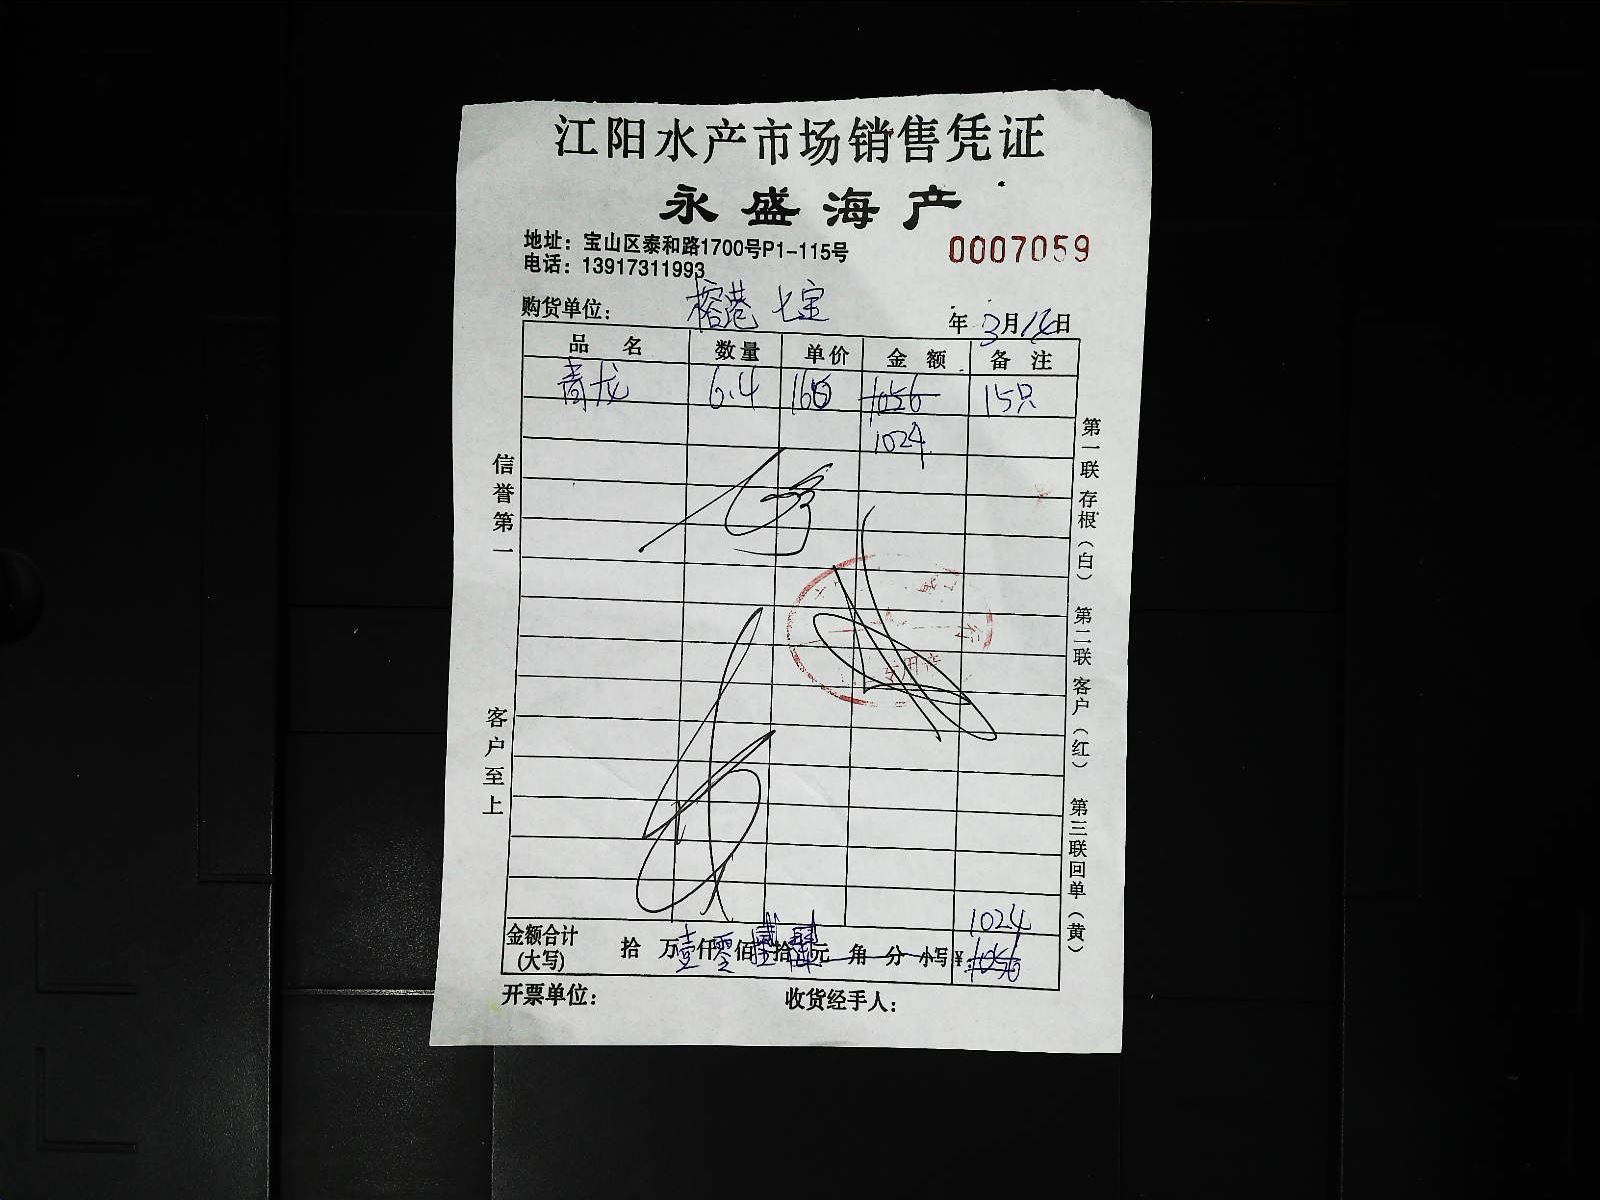 江阳水产市场销售凭证
永盛海产
地址：宝山区泰和路1700号P1-115号
0007059
电话：13917311993
购货单位：榕港 七宝
年 3月14日
品名 数量 单价 金额 备注
青龙 6.4 160 1056 15只
1024
信誉第一
客户至上
第一联 存根（白） 第二联 客户（红） 第三联 回单（黄）
专用章
1024
金额合计(大写) 拾 万壹仟零佰 拾 元 角 分 小写¥：1056
开票单位： 收货经手人：